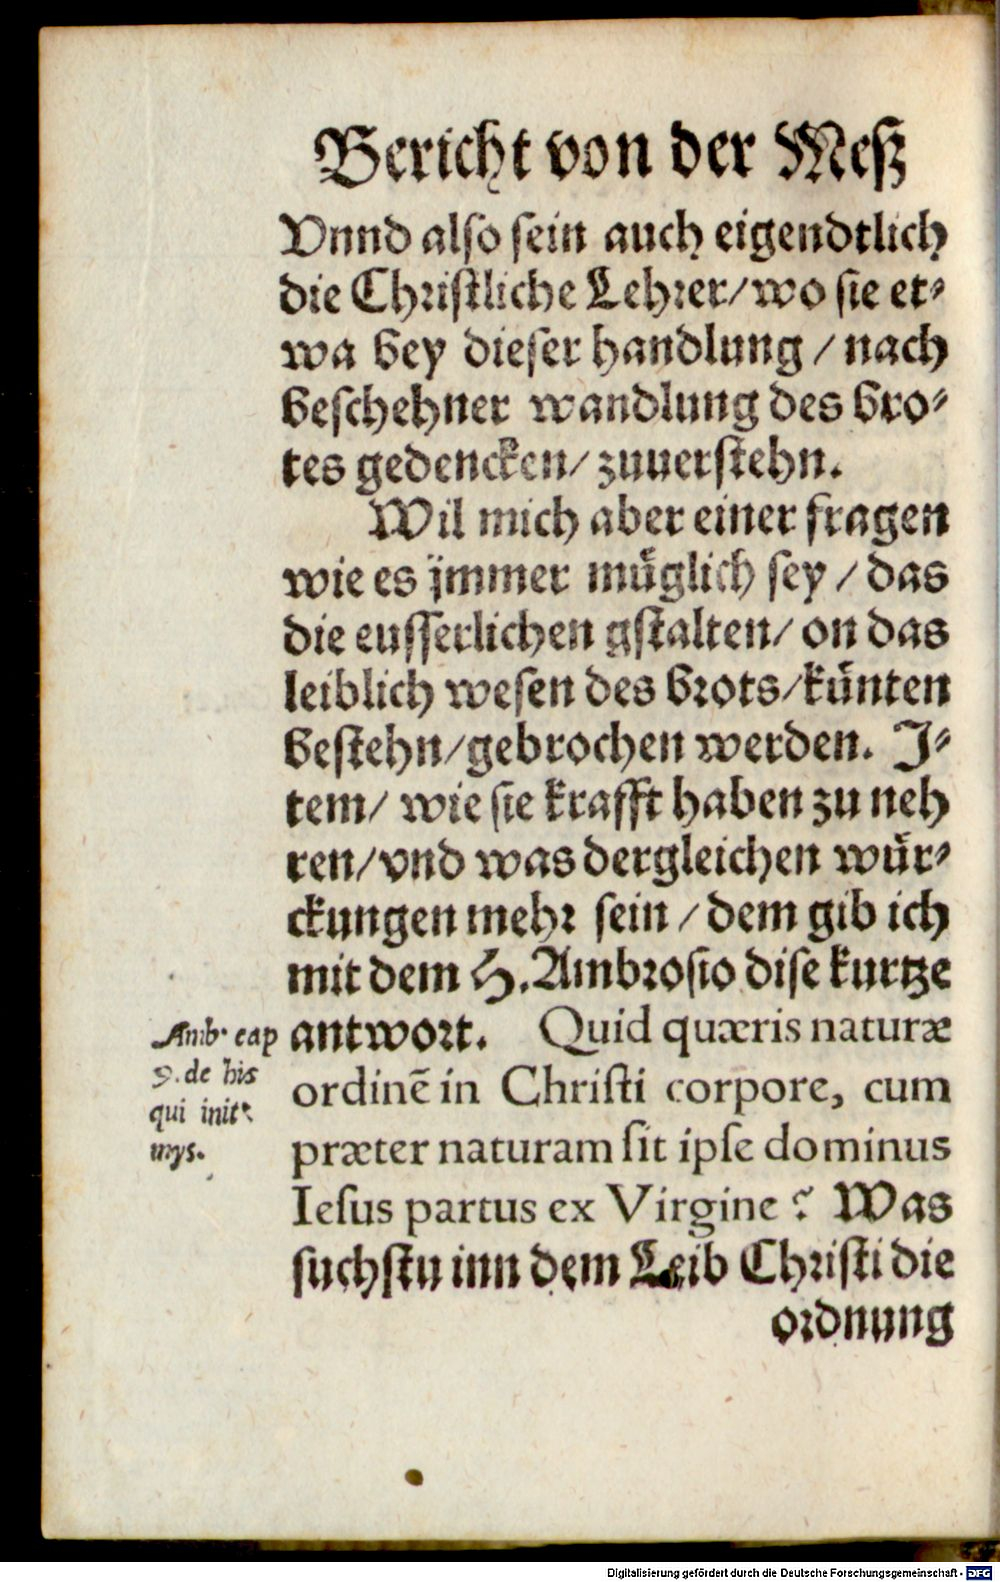 Bericht von der Meß
Vnnd also sein auch eigendtlich
die Christliche Lehrer/wo sie et-
wa bey dieser handlung / nach
beschehner wandlung des bro-
tes gedencken/ zuuerstehn.
Wil mich aber einer fragen
wie es jmmer müglich sey / das
die eusserlichen gstalten/ on das
leiblich wesen des brots/künten
bestehn/gebrochen werden. J-
tem/ wie sie krafft haben zu neh
ren/vnd was dergleichen wür-
ckungen mehr sein / dem gib ich
mit dem H. Ambrosio dise kurtze
antwort. Quid quæris naturæ
ordinē in Christi corpore, cum
præter naturam sit ipse dominus
Iesus partus ex Virgine? Was
suchstu inn dem Leib Christi die
ordnung
Amb. cap
9. de his
qui init.
mys.
Digitalisierung gefördert durch die Deutsche Forschungsgemeinschaft - DFG